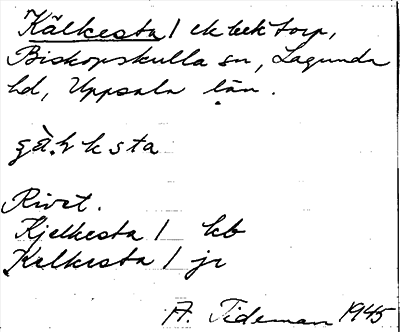 Kälkesta / ek bek torp,
Biskopskulla sn, Lagunda
hd, Uppsala län.
Rivet.
Kjelkesta / kb
Kelkesta / jr
A. Tideman 1945